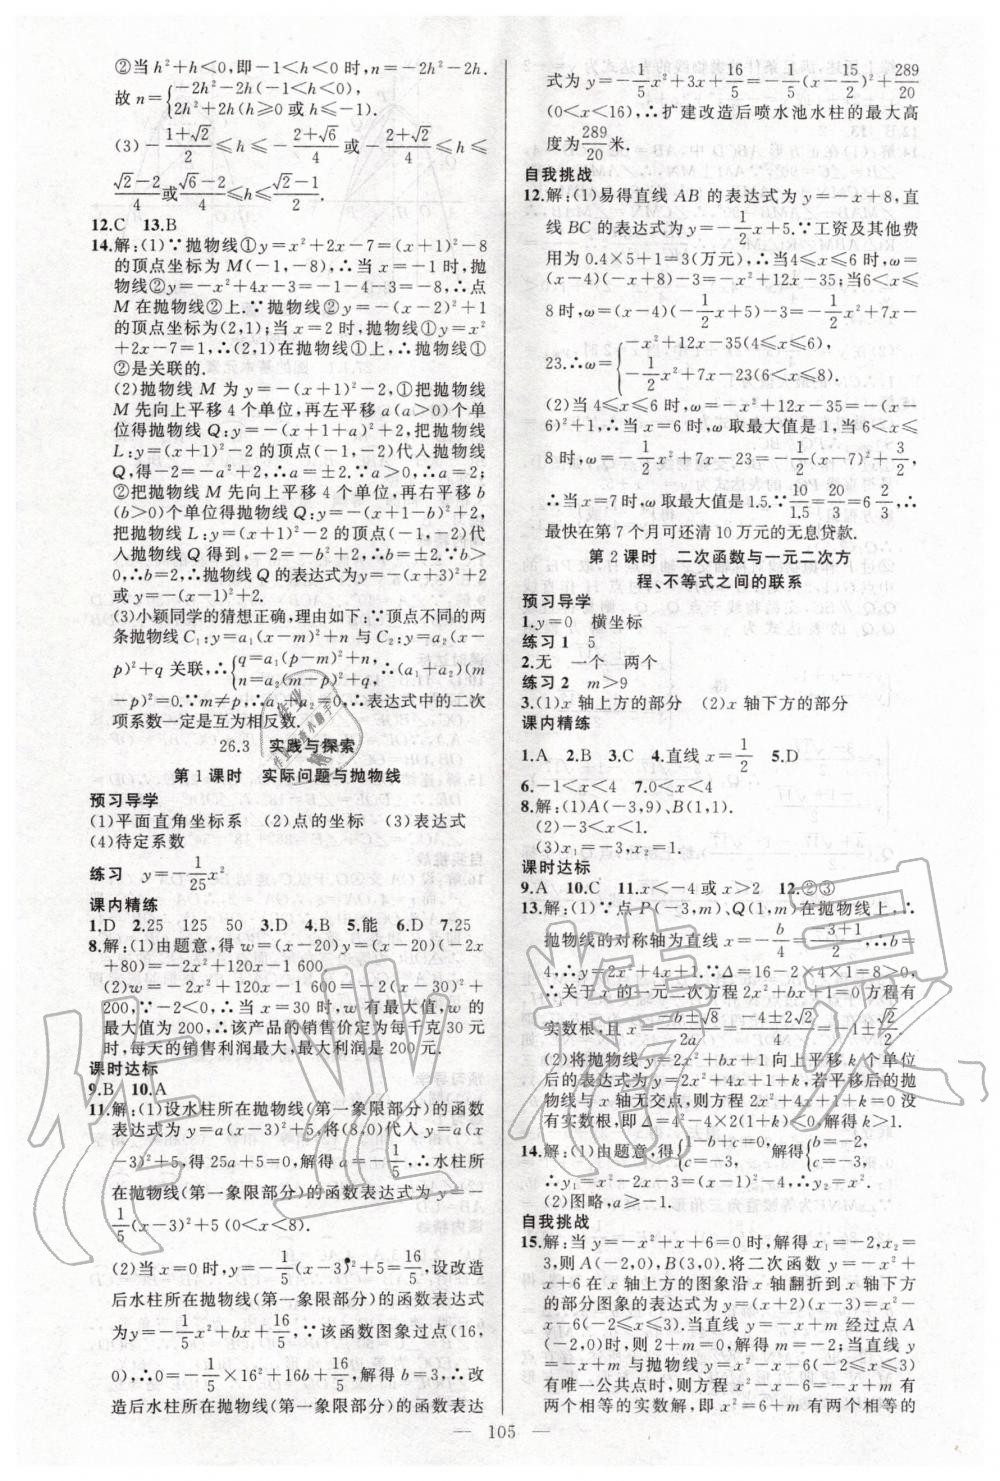 ②当h²+h<0,即-1<h<0时,n=-2h²-2h.
故n={-2h²-2h(-1<h<0)
2h²+2h(h≥0或h≤-1).
(3)-(1+√2)/2≤h≤-(2+√6)/4或-(2+√2)/4≤h≤
(√2-2)/4或(√6-2)/4≤h≤(√2-1)/2.
12.C 13.B
14.解:(1)∵抛物线①y=x²+2x-7=(x+1)²-8
的顶点坐标为M(-1,-8),∴当x=-1时,抛
物线②y=-x²+4x-3=-1-4-3=-8,∴点
M在抛物线②上.∵抛物线②y=-(x-2)²+1
的顶点坐标为(2,1);当x=2时,抛物线①y=x²
+2x-7=1,∴(2,1)在抛物线①上,∴抛物线①、
②是关联的.
(2)抛物线M为y=-(x+1)²-2,①把抛物线
M先向上平移4个单位,再左平移a(a>0)个单
位得抛物线Q:y=-(x+1+a)²+2,把抛物线
L:y=(x+1)²-2的顶点(-1,-2)代入抛物线
Q,得-2=-a²+2,∴a=±2.∵a>0,∴a=2;
②把抛物线M先向上平移4个单位,再右平移b
(b>0)个单位得抛物线Q:y=-(x+1-b)²+2,
把抛物线L:y=(x+1)²-2的顶点(-1,-2)代
入抛物线Q得到,-2=-b²+2,∴b=±2.∵b>
0,∴b=2,∴抛物线Q的表达式为y=-(x+3)²+2
或y=-(x-1)²+2.
(3)小颖同学的猜想正确,理由如下:∵顶点不同的两
条抛物线C₁:y=a₁(x-m)²+n与C₂:y=a₂(x-
p)²+q关联,∴{q=a₁(p-m)²+n,
n=a₂(m-p)²+q,∴(a₁+a₂)(m
-p)²=0.∵m≠p,∴a₁+a₂=0,∴表达式中的二次
项系数一定是互为相反数.
26.3 实践与探索
第1课时 实际问题与抛物线
预习导学
(1)平面直角坐标系 (2)点的坐标 (3)表达式
(4)待定系数
练习 y=-1/25x²
课内精练
1.D 2.25 125 50 3.D 4.B 5.能 6.D 7.25
8.解:(1)由题意,得w=(x-20)y=(x-20)(-2x
+80)=-2x²+120x-1 600
(2)w=-2x²+120x-1 600=-2(x-30)²+
200,∵-2<0,∴当x=30时,w有最大值,w的
最大值为200,∴该产品的销售价定为每千克30元
时,每天的销售利润最大,最大利润是200元.
课时达标
9.B 10.A
11.解:(1)设水柱所在抛物线(第一象限部分)的函数
表达式为y=a(x-3)²+5,将(8,0)代入y=a(x
-3)²+5,得25a+5=0,解得a=-1/5,∴水柱所
在抛物线(第一象限部分)的函数表达式为y=-
1/5(x-3)²+5(0<x<8).
(2)当x=0时,y=-1/5(x-3)²+5=16/5,设改造
后水柱所在抛物线(第一象限部分)的函数表达式
为y=-1/5x²+bx+16/5,∵该函数图象过点(16,
0),∴0=-1/5×16²+16b+16/5,解得b=3,∴改
造后水柱所在抛物线(第一象限部分)的函数表达
式为y=-1/5x²+3x+16/5=-1/5(x-15/2)²+289/20
(0<x<16),∴扩建改造后喷水池水柱的最大高
度为289/20米.
自我挑战
12.解:(1)易得直线AB的表达式为y=-x+8,直
线BC的表达式为y=-1/2x+5.∵工资及其他费
用为0.4×5+1=3(万元),∴当4≤x≤6时,ω=
(x-4)(-x+8)-3=-x²+12x-35;当6<x≤
8时,ω=(x-4)(-1/2x+5)-3=-1/2x²+7x-
23.∴ω={-x²+12x-35(4≤x≤6),
-1/2x²+7x-23(6<x≤8).
(2)当4≤x≤6时,ω=-x²+12x-35=-(x-
6)²+1,∴当x=6时,ω取最大值是1,当6<x≤
8时,ω=-1/2x²+7x-23=-1/2(x-7)²+3/2,
∴当x=7时,ω取最大值是1.5.∵10/1.5=20/3=6 2/3,∴
最快在第7个月可还清10万元的无息贷款.
第2课时 二次函数与一元二次方
程、不等式之间的联系
预习导学
1.y=0 横坐标
练习1 5
2.无 一个 两个
练习2 m>9
3.(1)x轴上方的部分 (2)x轴下方的部分
课内精练
1.A 2.B 3.C 4.直线x=1/2 5.D
6.-1<x<4 7.0<x<4
8.解:(1)A(-3,9),B(1,1).
(2)-3<x<1.
(3)x₁=-3,x₂=1.
课时达标
9.A 10.C 11.x<-4或x>2 12.②③
13.解:(1)∵点P(-3,m)、Q(1,m)在抛物线上,∴
抛物线的对称轴为直线x=-b/4=(-3+1)/2,∴b=
4,∴y=2x²+4x+1.∵Δ=16-2×4×1=8>0,
∴关于x的一元二次方程2x²+bx+1=0有
实数根,且x=(-b±√8)/2a=(-4±2√2)/4=-1±√2/2.
(2)将抛物线y=2x²+4x+1向上平移k个单位
后的表达式为y=2x²+4x+1+k,若平移后的抛
物线与x轴无交点,则方程2x²+4x+1+k=0
没有实数根,即Δ=4²-4×2(1+k)<0,解得k>1.
14.解:(1)由题意,得{1-b+c=0,
c=-3,解得{b=-2,
c=-3,
∴y₁=x²-2x-3=(x-1)²-4,∴y₂=x².
(2)图略,a≥-1.
自我挑战
15.解:当y=-x²+x+6=0时,解得x₁=-2,x₂=
3,则A(-2,0),B(3,0).将二次函数y=-x²+
x+6在x轴上方的图象沿x轴翻折到x轴下方
的部分图象的表达式为y=(x+2)(x-3)=x²-
x-6(-2≤x≤3).当直线y=-x+m经过点A
(-2,0)时,则2+m=0,解得m=-2;当直线y=
-x+m与抛物线y=x²-x-6(-2≤x≤3)
有唯一公共点时,则方程x²-x-6=-x+m有
两个相等的实数解,即x²=6+m有两个相等的
105